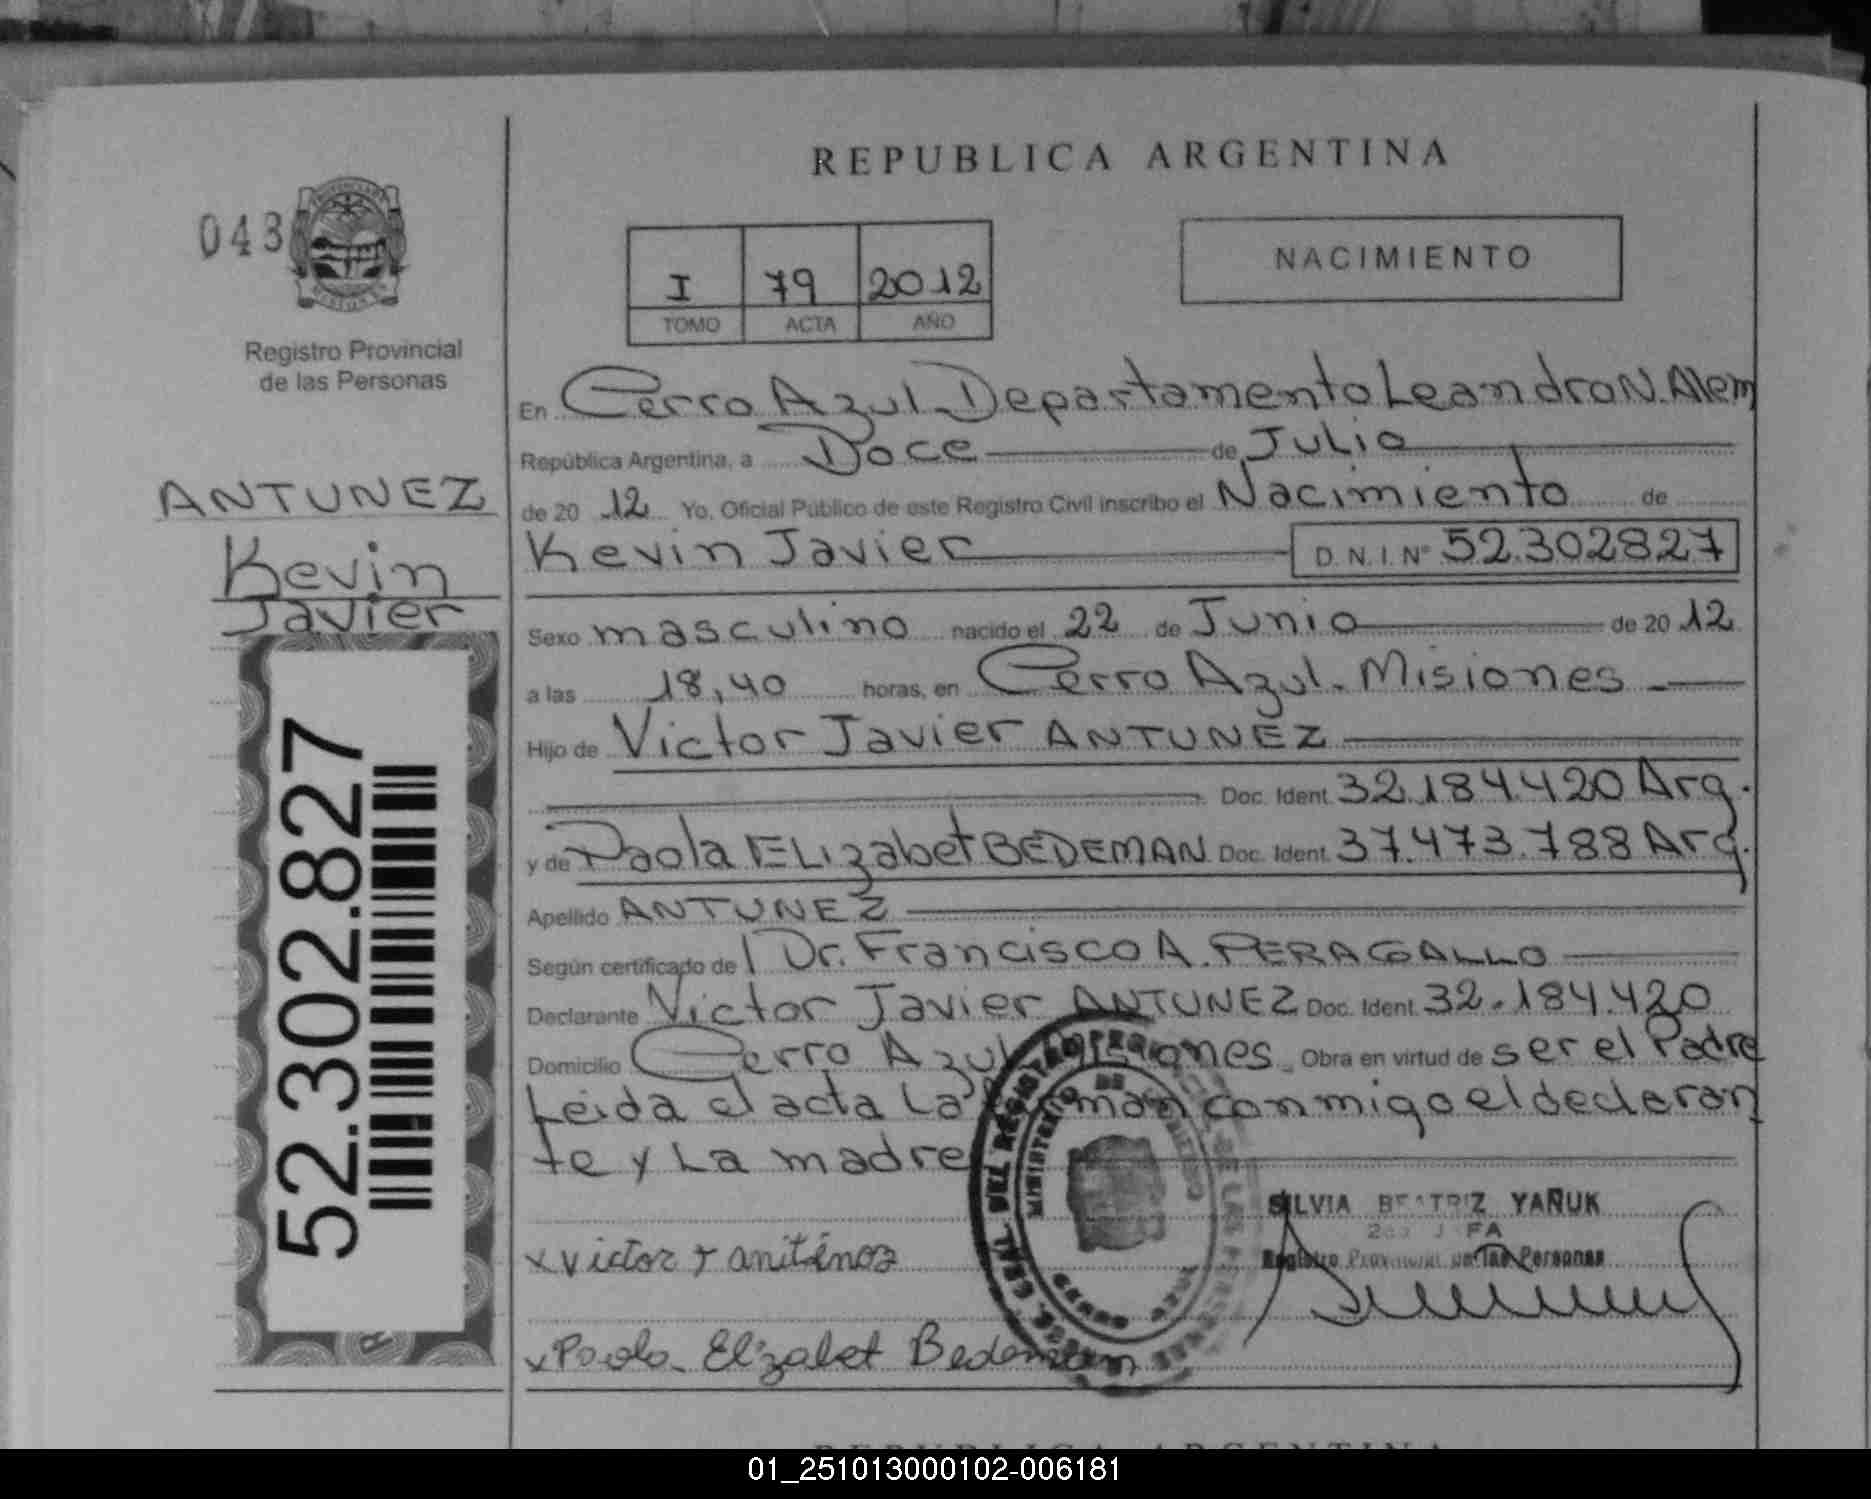 REPUBLICA ARGENTINA
043
I 79 2012
TOMO ACTA AÑO
NACIMIENTO
Registro Provincial
de las Personas
ANTUNEZ
Kevin
Javier
52.302.827
En Cerro Azul Departamento Leandro N. Alem
República Argentina, a Doce de Julio
de 20 12 Yo, Oficial Público de este Registro Civil inscribo el Nacimiento de
Kevin Javier D.N.I. N° 52.302827
Sexo masculino nacido el 22 de Junio de 20 12
a las 18,40 horas, en Cerro Azul. Misiones
Hijo de Victor Javier ANTUNEZ
Doc. Ident. 32.184.420 Arg.
y de Paola ELizabet BEDEMAN Doc. Ident. 37.473.788 Arg.
Apellido ANTUNEZ
Según certificado de Dr. Francisco A. PERAGALLO
Declarante Victor Javier ANTUNEZ Doc. Ident. 32.184.420
Domicilio Cerro Azul Misiones. Obra en virtud de ser el Padre
Leida el acta La conmigo el declaran
te y La madre
SILVIA BEATRIZ YAÑUK
Registro Provincial de las Personas
x victor
x Paola Elizabet Bedeman
MINISTERIO DE
CERRO AZUL
REPUBLICA ARGENTINA
01_251013000102-006181